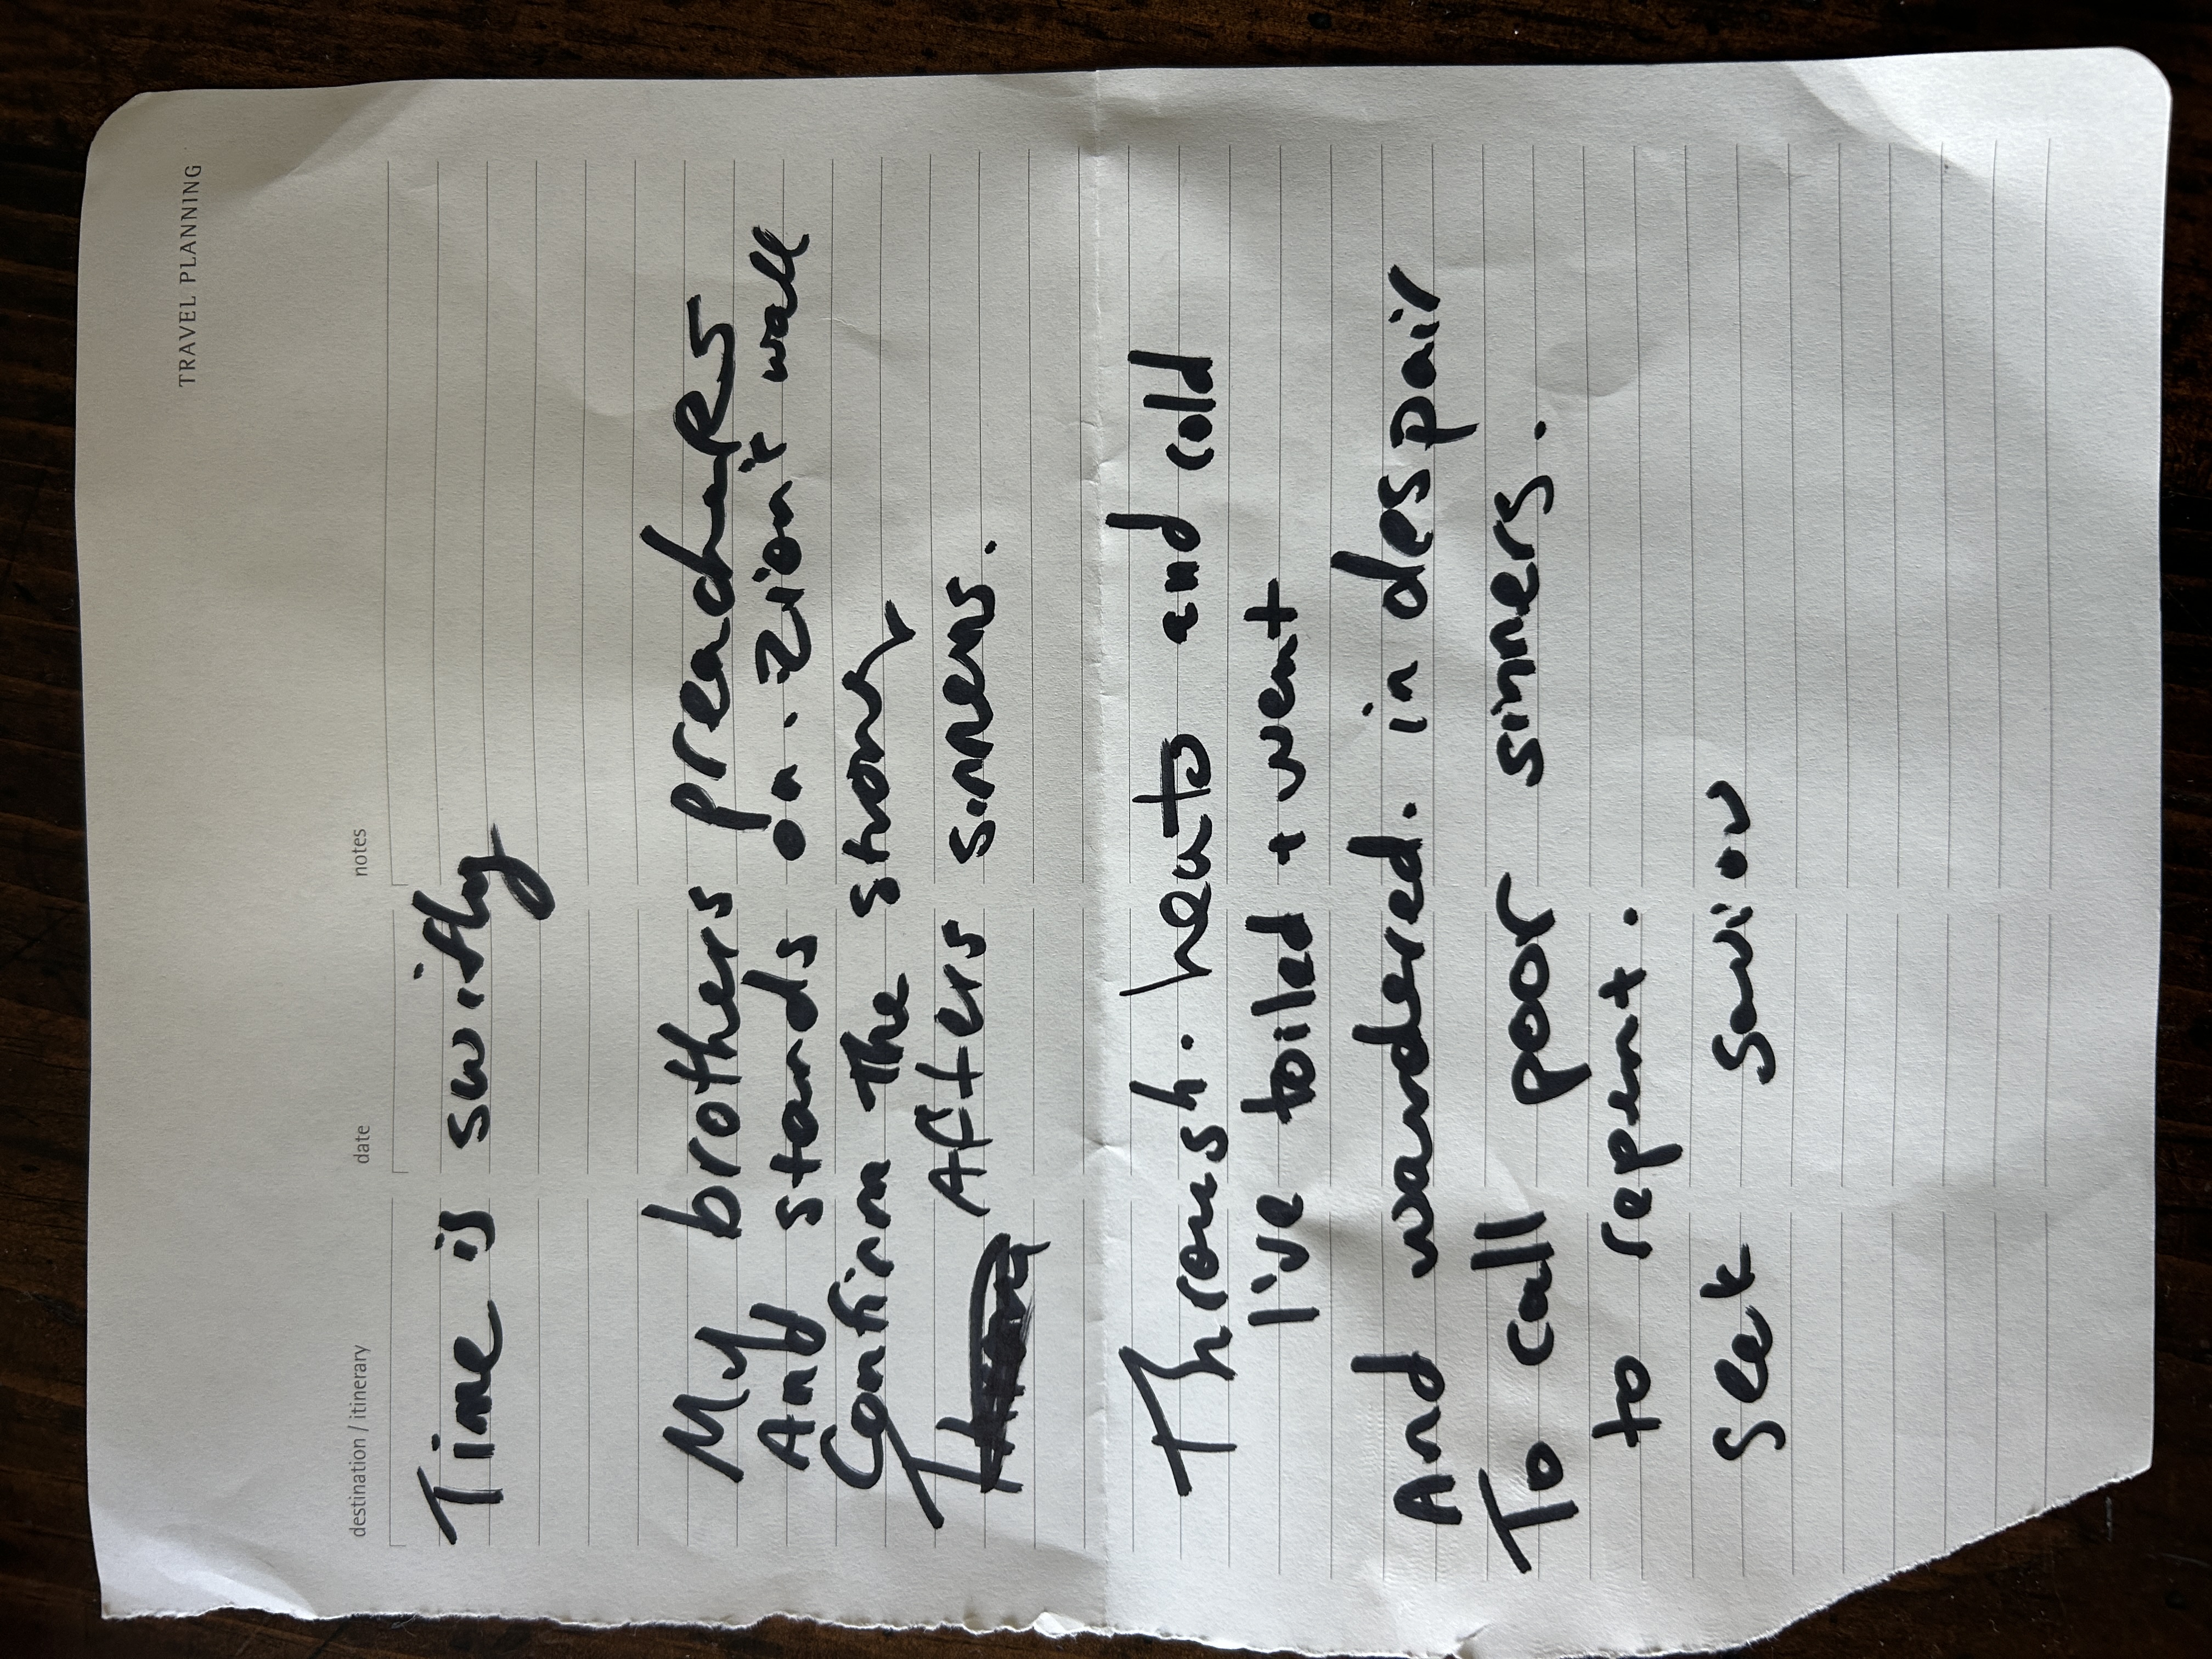 TRAVEL PLANNING
destination / itinerary date notes
Time is swiftly
My brothers preachers
And stands on. Zion's wall
Confirm the strong
After sinners.
Through. heats and cold
I've toiled + went
And wandered. in despair
To call poor sinners.
to repent.
Seek Saviour